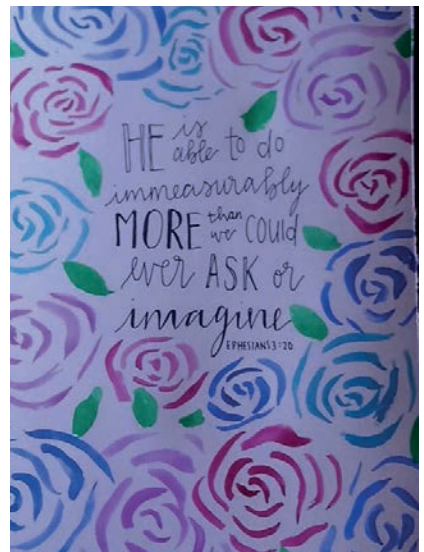 HE is able to do
immeasurably
MORE than we could
ever ASK or
imagine
EPHESIANS 3:20